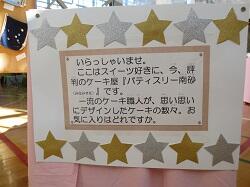 いらっしゃいませ。
ここはスイーツ好きに、今、評
判のケーキ屋『パティスリー南砂
(みなみすな)』です。
一流のケーキ職人が、思い思い
にデザインしたケーキの数々。お
気に入りはどれですか。